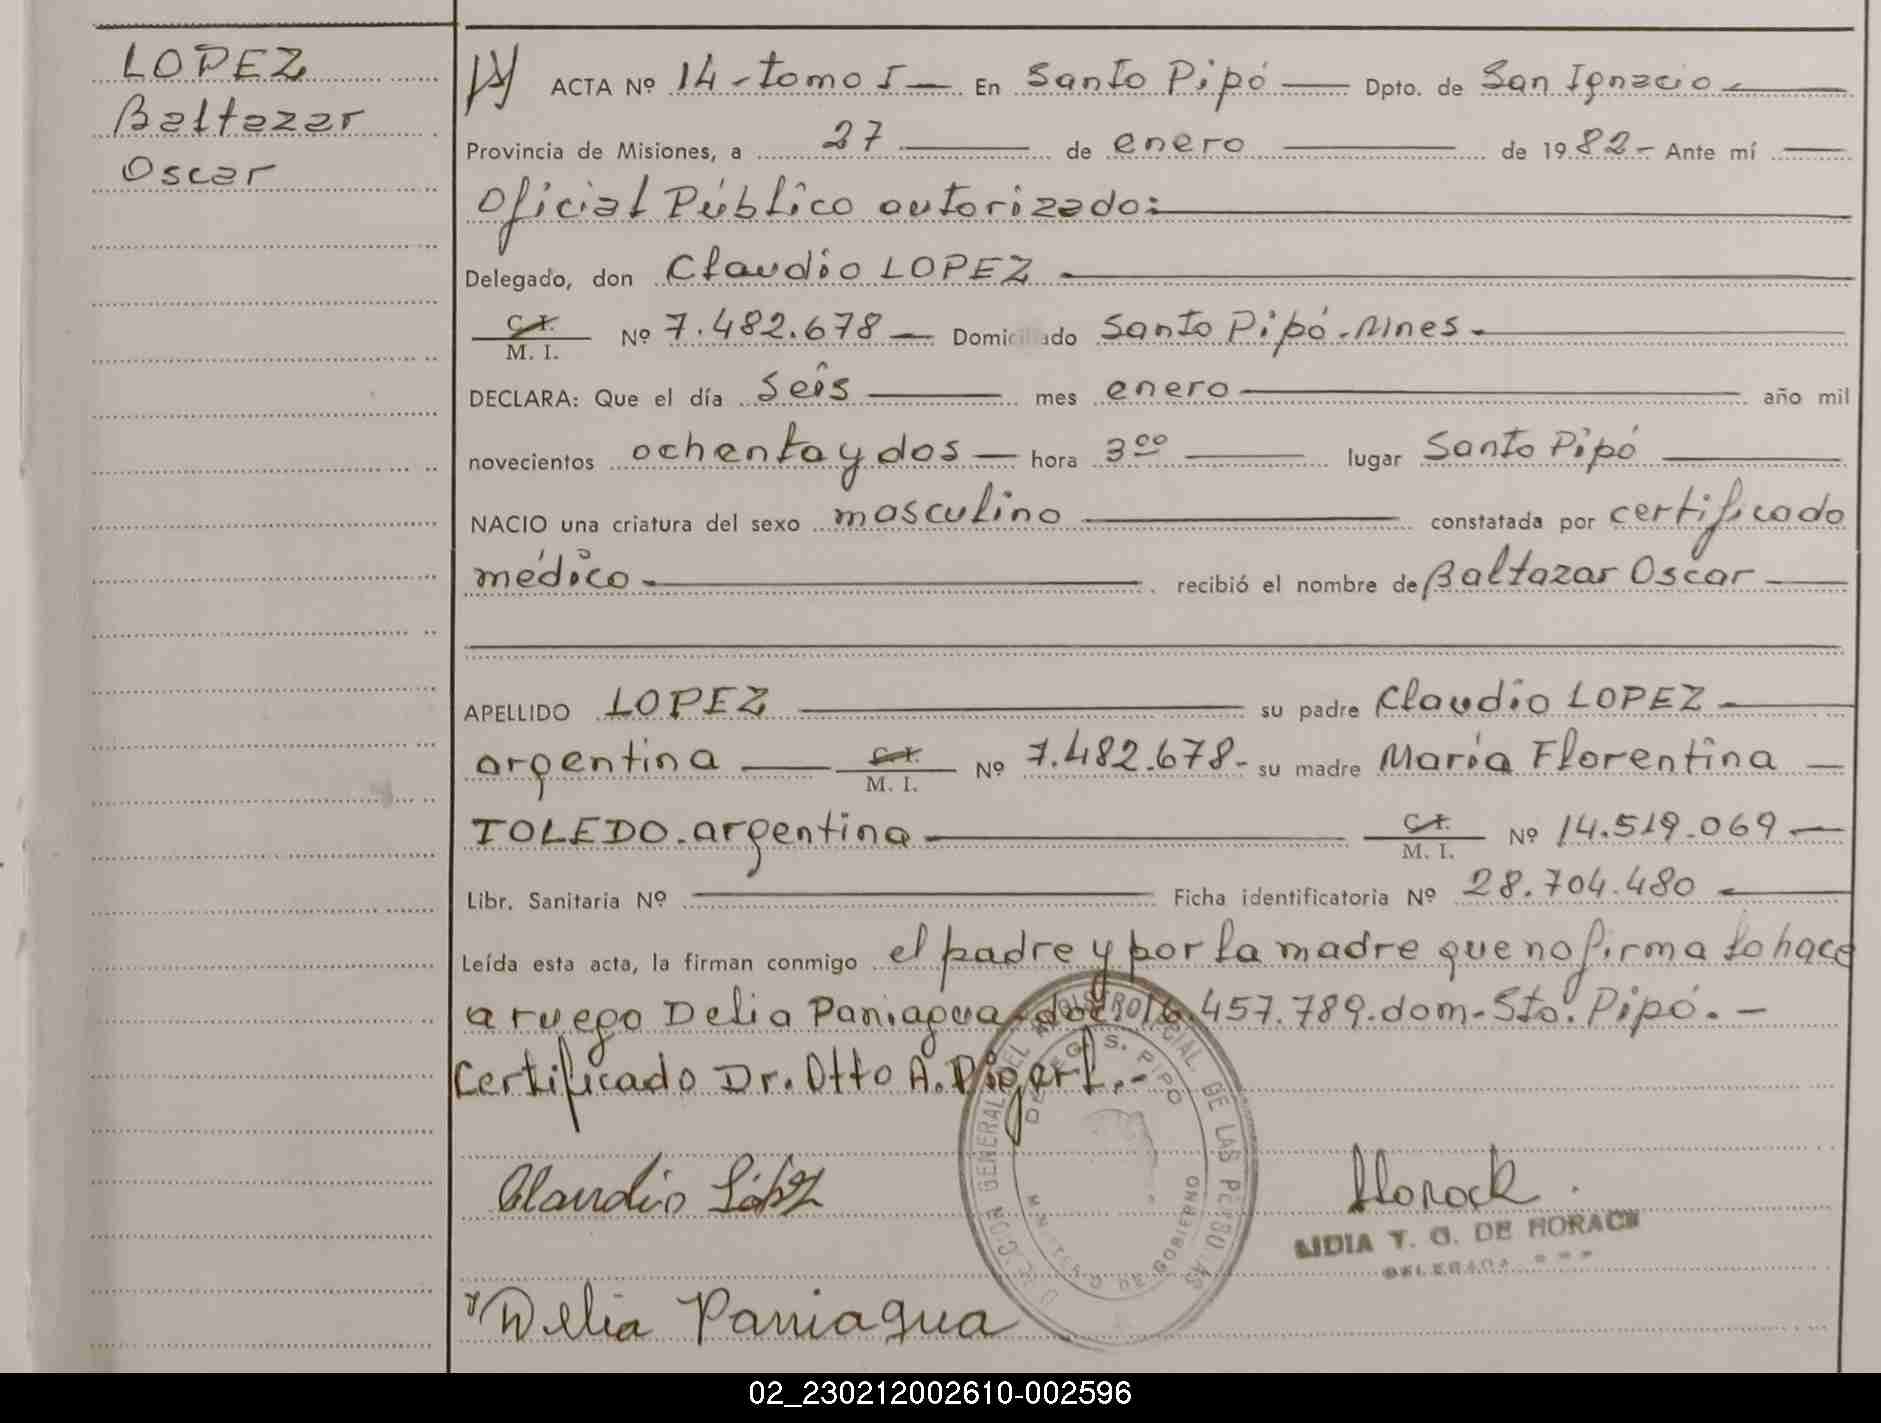 LOPEZ
Baltazar
Oscar
ACTA Nº 14 - tomo I — En Santo Pipó — Dpto. de San Ignacio —
Provincia de Misiones, a 27 — de enero — de 1982 - Ante mí —
Oficial Público autorizado:
Delegado, don Claudio LOPEZ —
C. I.
M. I. Nº 7.482.678 — Domiciliado Santo Pipó - Mnes. —
DECLARA: Que el día Seis — mes enero — año mil
novecientos ochenta y dos — hora 3 00 — lugar Santo Pipó —
NACIO una criatura del sexo masculino — constatada por certificado
médico — recibió el nombre de Baltazar Oscar —
APELLIDO LOPEZ — su padre Claudio LOPEZ —
argentina — C. I. M. I. Nº 7.482.678 - su madre María Florentina —
TOLEDO. argentina — C. I. M. I. Nº 14.519.069 —
Libr. Sanitaria Nº — Ficha identificatoria Nº 28.704.480 —
Leída esta acta, la firman conmigo el padre y por la madre que no firma lo hace
a ruego Delia Paniagua - doc 16.457.789. dom. Sto. Pipó. —
Certificado Dr. Otto A.
DELEG. S. PIPO
Claudio López
Horack.
LIDIA T. G. DE HORACK
DELEGADA
Delia Paniagua
02_230212002610-002596